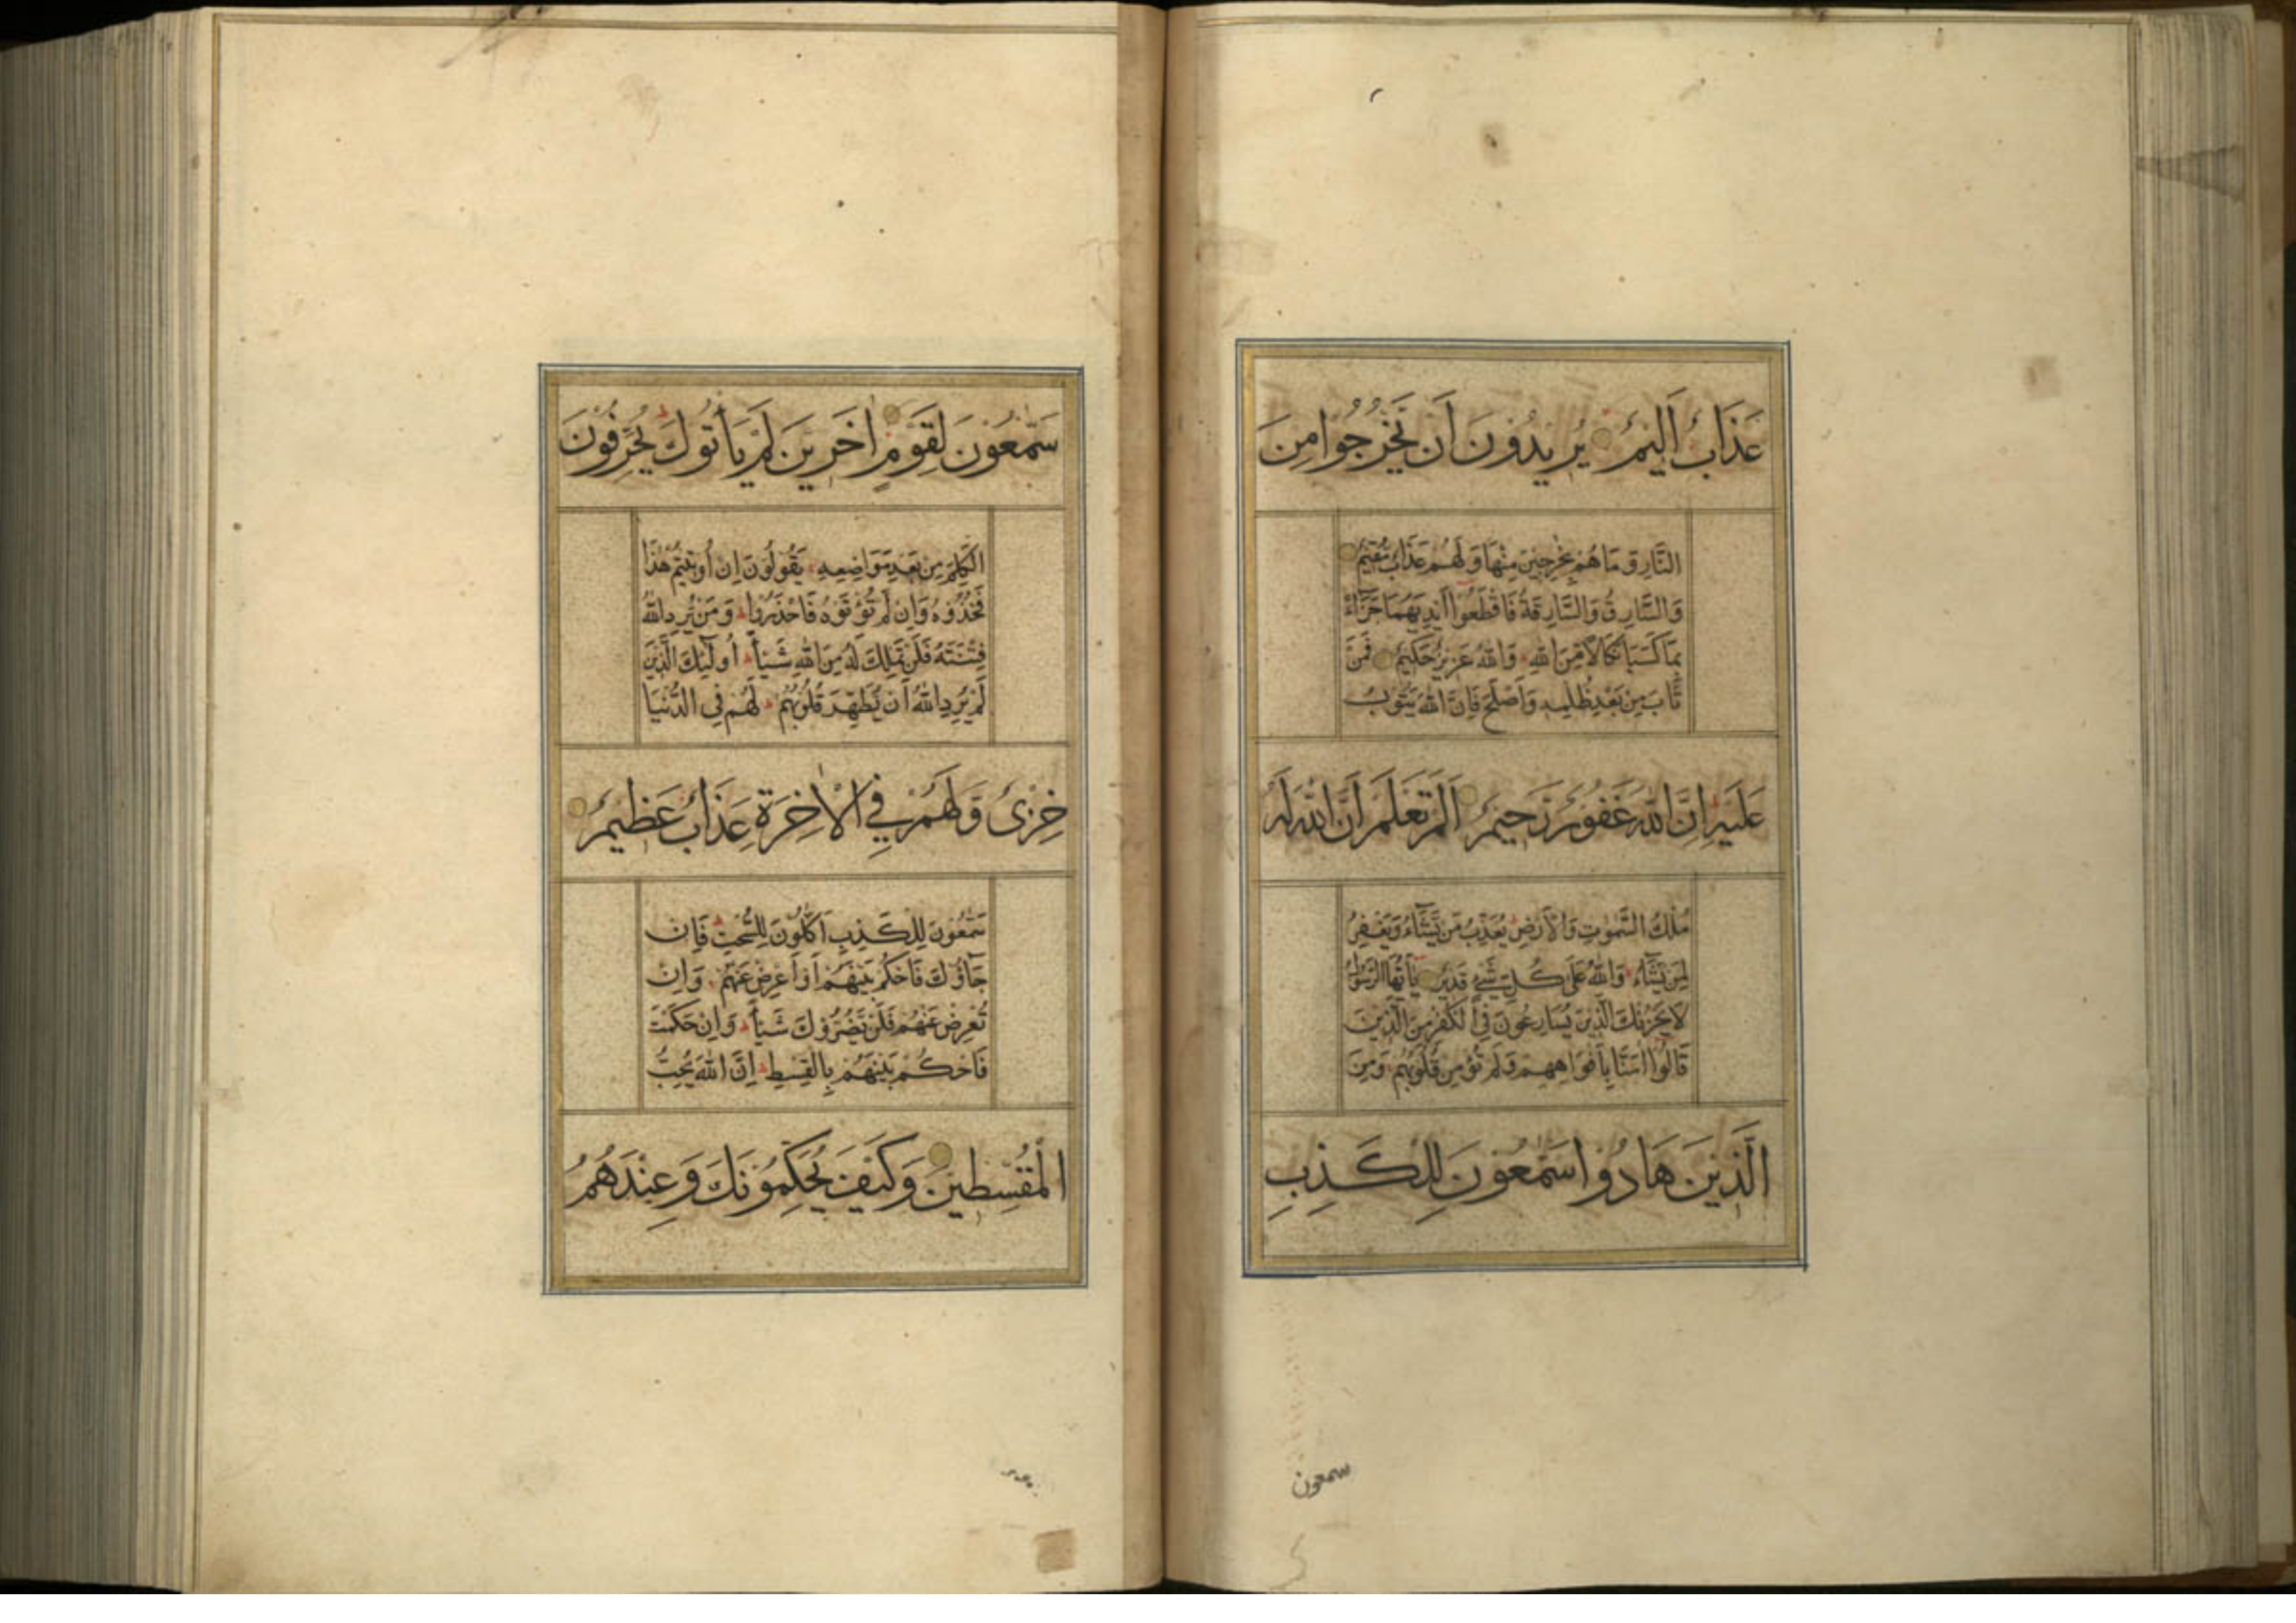 عَذَابٌ اَلِيمٌ يُرِيدُونَ اَنْ يَخْرُجُوا مِنَ
النَّارِ وَمَا هُمْ بِخَارِجِينَ مِنْهَا وَلَهُمْ عَذَابٌ مُّقِيمٌ
وَالسَّارِقُ وَالسَّارِقَةُ فَاقْطَعُوا اَيْدِيَهُمَا جَزَآءً
بِمَا كَسَبَا نَكَالًا مِّنَ اللّٰهِ وَاللّٰهُ عَزِيزٌ حَكِيمٌ فَمَنْ
تَابَ مِنْ بَعْدِ ظُلْمِهِ وَاَصْلَحَ فَاِنَّ اللّٰهَ يَتُوبُ
عَلَيْهِ اِنَّ اللّٰهَ غَفُورٌ رَّحِيمٌ اَلَمْ تَعْلَمْ اَنَّ اللّٰهَ لَهُ
مُلْكُ السَّمٰوٰتِ وَالْاَرْضِ يُعَذِّبُ مَنْ يَّشَآءُ وَيَغْفِرُ
لِمَنْ يَّشَآءُ وَاللّٰهُ عَلٰى كُلِّ شَيْءٍ قَدِيرٌ يَآ اَيُّهَا الرَّسُولُ
لَا يَحْزُنْكَ الَّذِينَ يُسَارِعُونَ فِي الْكُفْرِ مِنَ الَّذِينَ
قَالُوا اٰمَنَّا بِاَفْوَاهِهِمْ وَلَمْ تُؤْمِنْ قُلُوبُهُمْ وَمِنَ
الَّذِينَ هَادُوا سَمّٰعُونَ لِلْكَذِبِ
سمعون
سَمّٰعُونَ لِقَوْمٍ اٰخَرِينَ لَمْ يَأْتُوكَ يُحَرِّفُونَ
الْكَلِمَ مِنْ بَعْدِ مَوَاضِعِهِ يَقُولُونَ اِنْ اُوتِيتُمْ هٰذَا
فَخُذُوهُ وَاِنْ لَمْ تُؤْتَوْهُ فَاحْذَرُوا وَمَنْ يُرِدِ اللّٰهُ
فِتْنَتَهُ فَلَنْ تَمْلِكَ لَهُ مِنَ اللّٰهِ شَيْـًٔا اُولٰٓئِكَ الَّذِينَ
لَمْ يُرِدِ اللّٰهُ اَنْ يُطَهِّرَ قُلُوبَهُمْ لَهُمْ فِي الدُّنْيَا
خِزْىٌ وَّلَهُمْ فِي الْاٰخِرَةِ عَذَابٌ عَظِيمٌ
سَمّٰعُونَ لِلْكَذِبِ اَكّٰلُونَ لِلسُّحْتِ فَاِنْ
جَآؤُكَ فَاحْكُمْ بَيْنَهُمْ اَوْ اَعْرِضْ عَنْهُمْ وَاِنْ
تُعْرِضْ عَنْهُمْ فَلَنْ يَّضُرُّوكَ شَيْـًٔا وَاِنْ حَكَمْتَ
فَاحْكُمْ بَيْنَهُمْ بِالْقِسْطِ اِنَّ اللّٰهَ يُحِبُّ
الْمُقْسِطِينَ وَكَيْفَ يُحَكِّمُونَكَ وَعِنْدَهُمُ